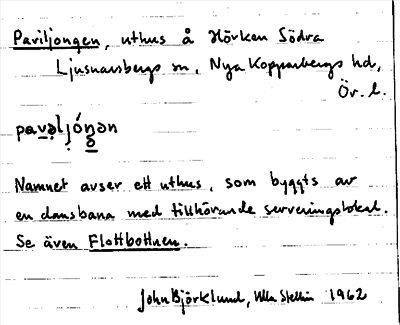 Paviljongen, uthus å Hörken Södra
Ljusnarsbergs sn, Nya Kopparbergs hd,
Ör. l.
pavəljóŋən
Namnet avser ett uthus, som byggts av
en dansbana med tillhörande serveringslokal.
Se även Flottbottnen.
John Björklund, Ulla Stellin 1962